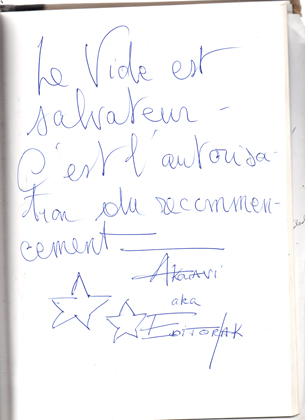 Le Vide est
salvateur -
C'est l'autorisa-
tion du recommen-
cement
Akaavi
aka
Editorak